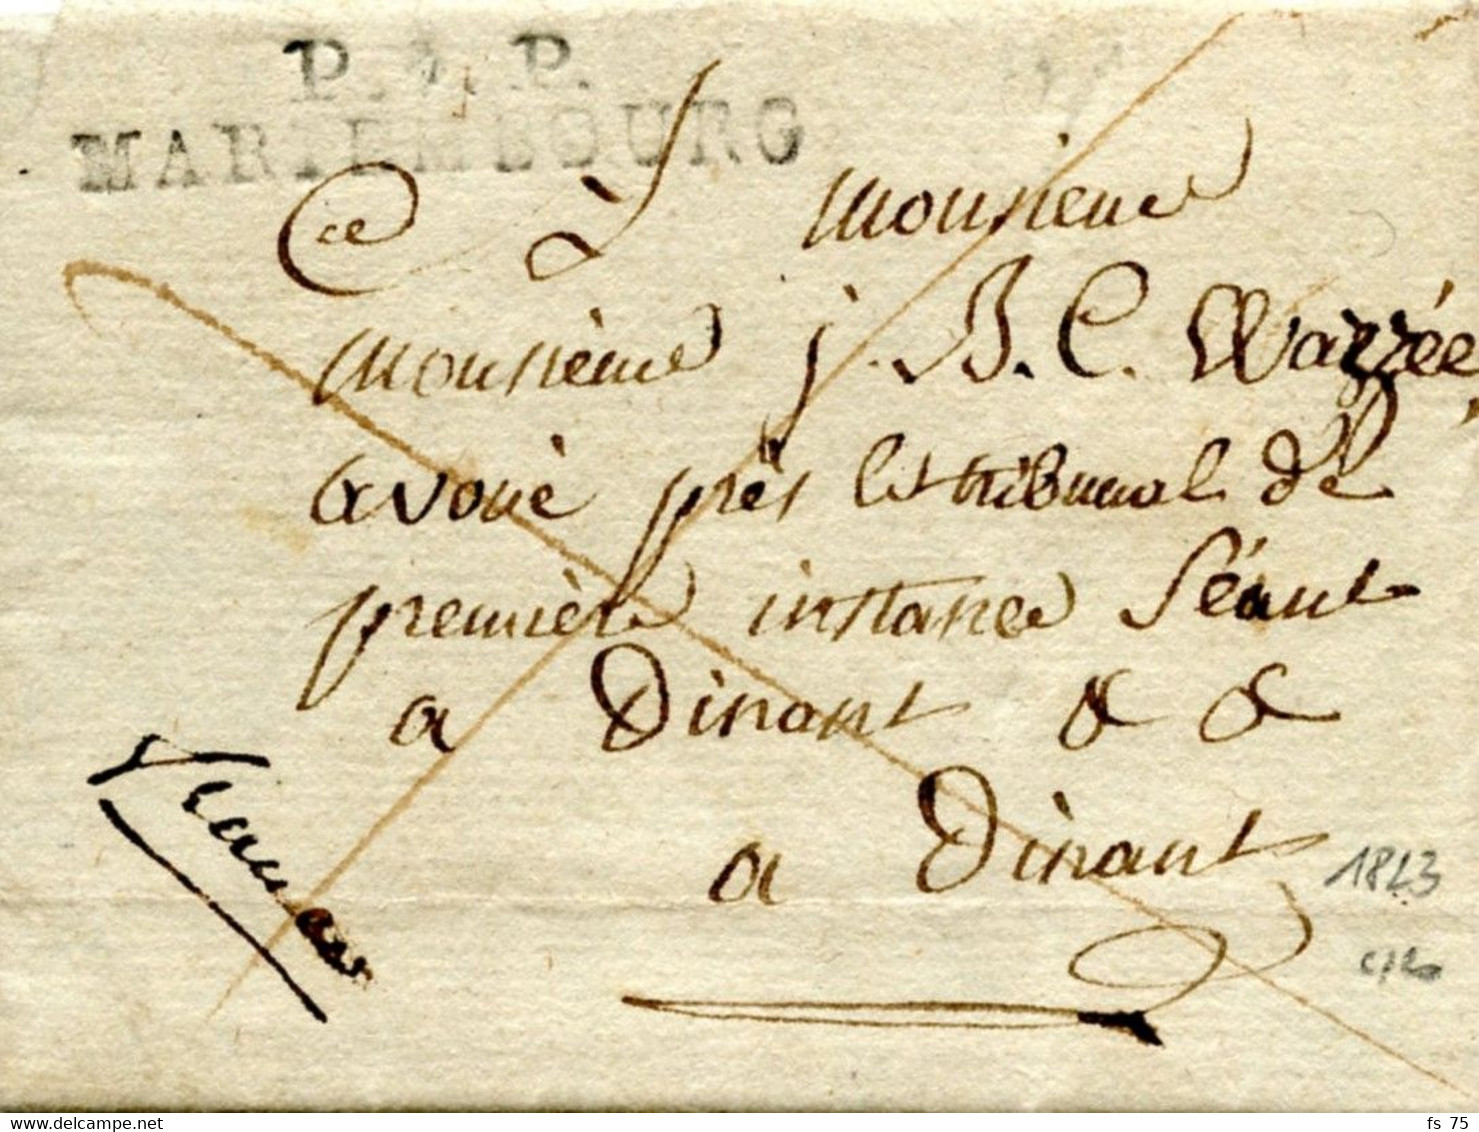 P. P. P.
MARIEMBOURG
ce
Monsieur
Monsieur j. B. C. Wazzée
avoué près le tribunal de
première instance Séant
a Dinant & &
a Dinant
franco
1823
delcampe.net
fs_75